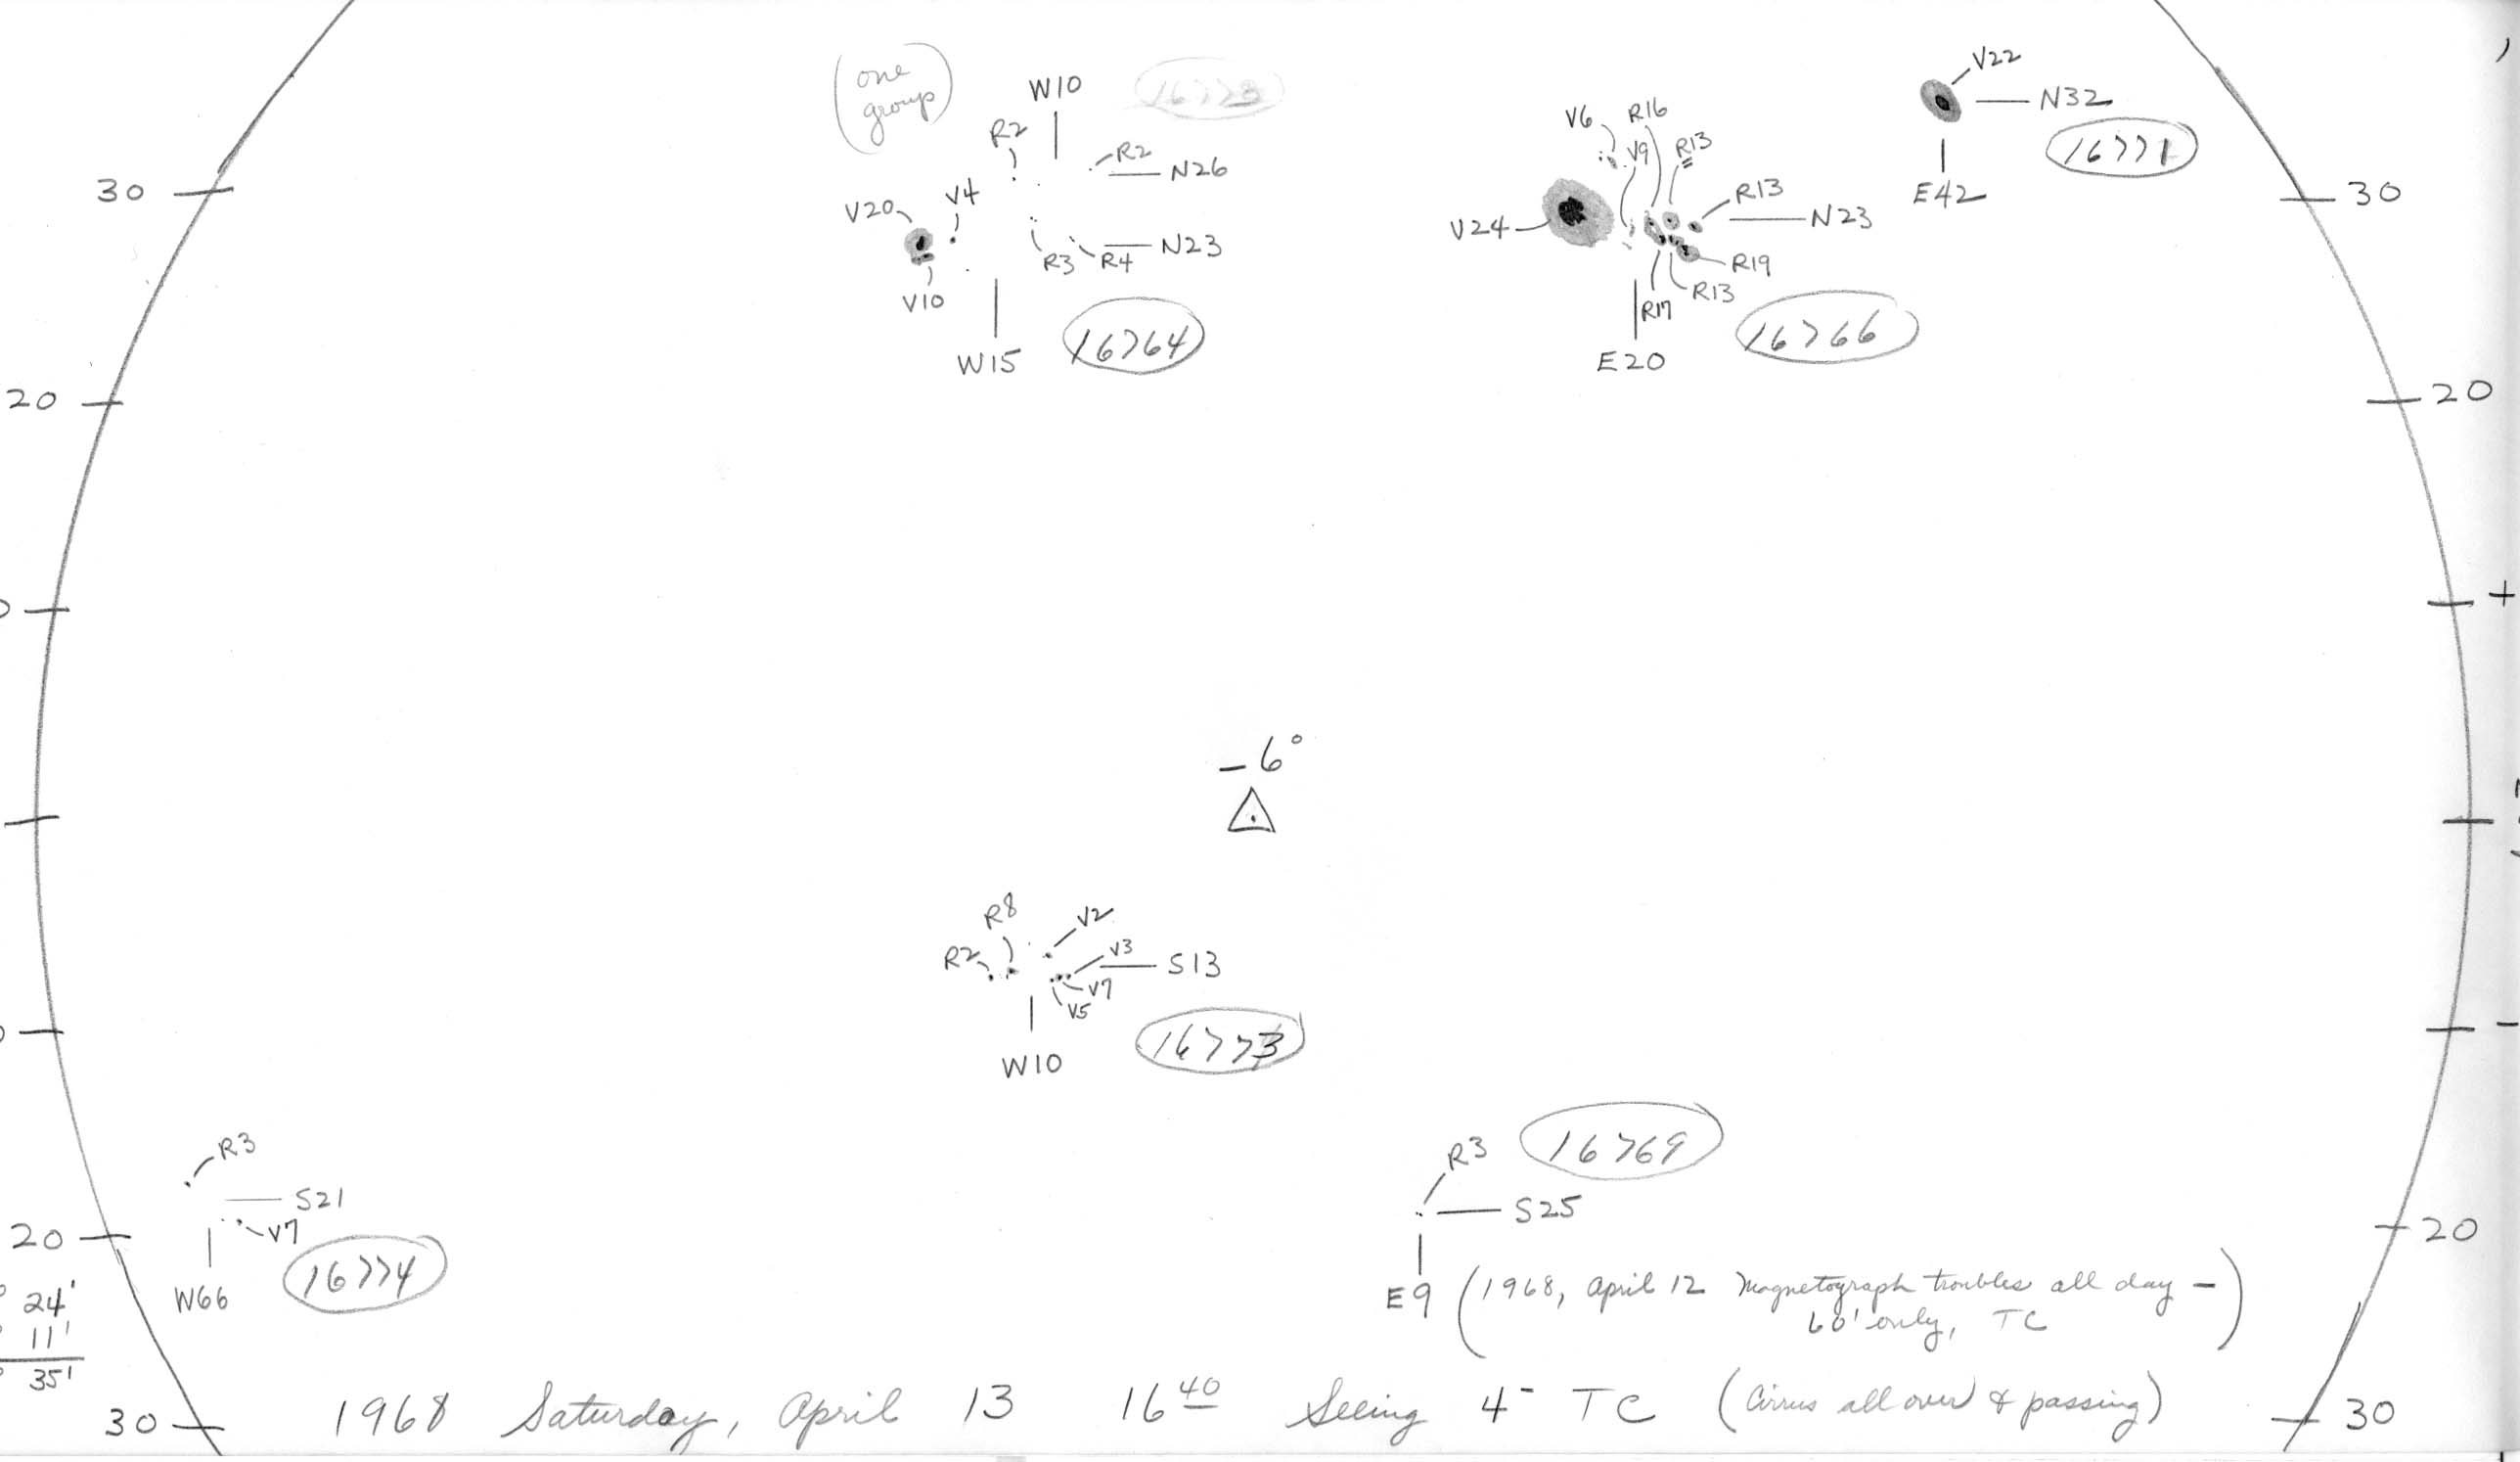 (one group)
W10
16773
R2
R2
N26
V20
V4
R3
R4
N23
V10
W15
16764
V22
N32
16771
E42
V6
R16
V9
R13
R13
V24
N23
R19
R13
R17
E20
16766
30
30
20
20
+
-6°
R8
V2
R2
V3
S13
V7
V5
W10
16773
-
R3
S21
V7
W66
16774
R3
16769
S25
E9
(1968, April 12 Magnetograph troubles all day -
60' only, TC)
20
20
24'
11'
35'
30
30
1968 Saturday, April 13 16 40 Seeing 4- TC (Cirrus all over & passing)